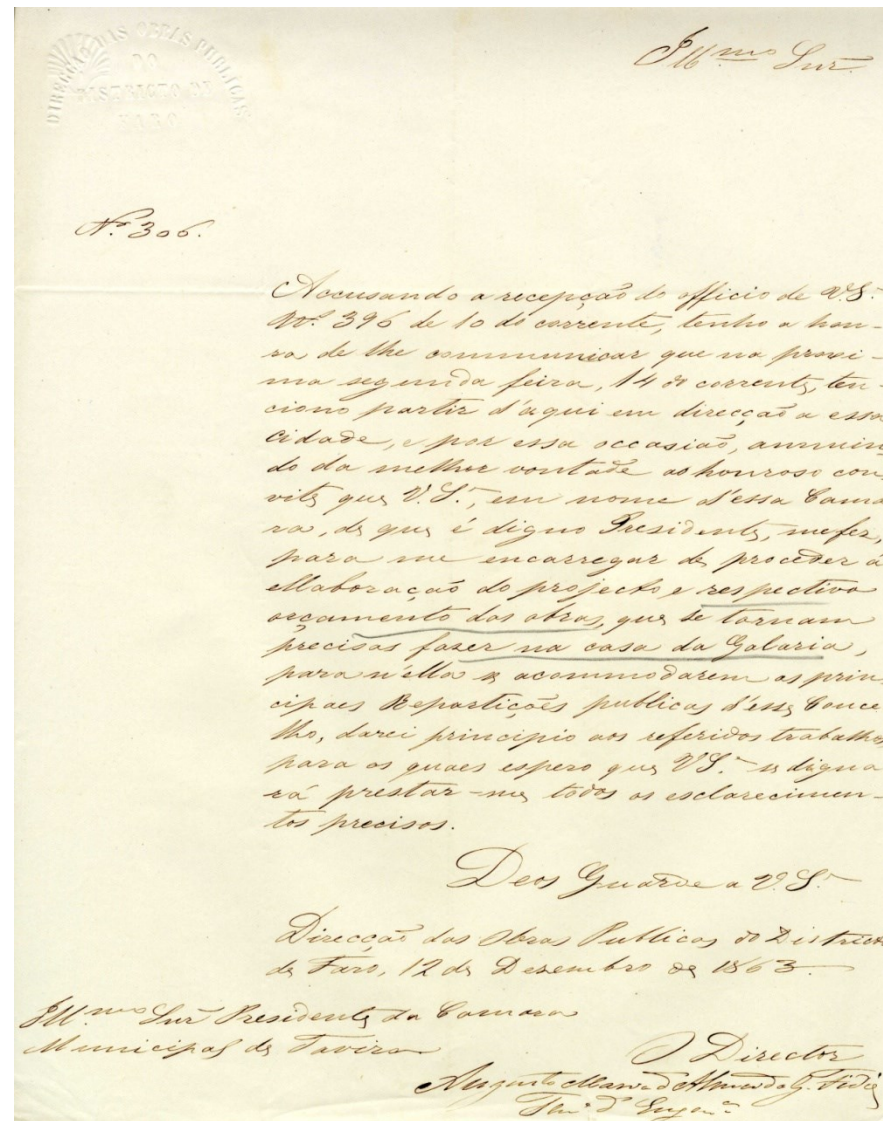 DIRECÇÃO DAS OBRAS PUBLICAS
DO
DISTRICTO DE
FARO
Ill.mo Snr.
N.º 306.
Accusando a recepção do officio de V.S.ª
N.º 396 de 10 do corrente, tenho a hon-
ra, de lhe communicar que na proxi-
ma segunda feira, 14 do corrente, ten-
ciono partir d'aqui em direcção a essa
cidade, e por essa occasião, annuin-
do da melhor vontade ao honroso con-
vite que V.S.ª, em nome d'essa Cama-
ra, de que é digno Presidente, me fez,
para me encarregar de proceder á
ellaboração do projecto e respectivo
orçamento das obras, que se tornam
precisas fazer na casa da Galaria,
para n'ella se acommodarem as prin-
cipaes Repartições publicas d'esse Conce-
lho, darei principio aos referidos trabalhos,
para os quaes espero que V.S.ª se digna-
rá prestar-me todos os esclarecimen-
tos precisos.
Deos Guarde a V.S.ª
Direcção das Obras Publicas do Districto
de Faro, 12 de Dezembro de 1863.
Ill.mo Snr. Presidente da Camara
Municipal de Tavira
O Director
Augusto Maria d'Almeida G. Fidié
Ten.e d'Engen.ª